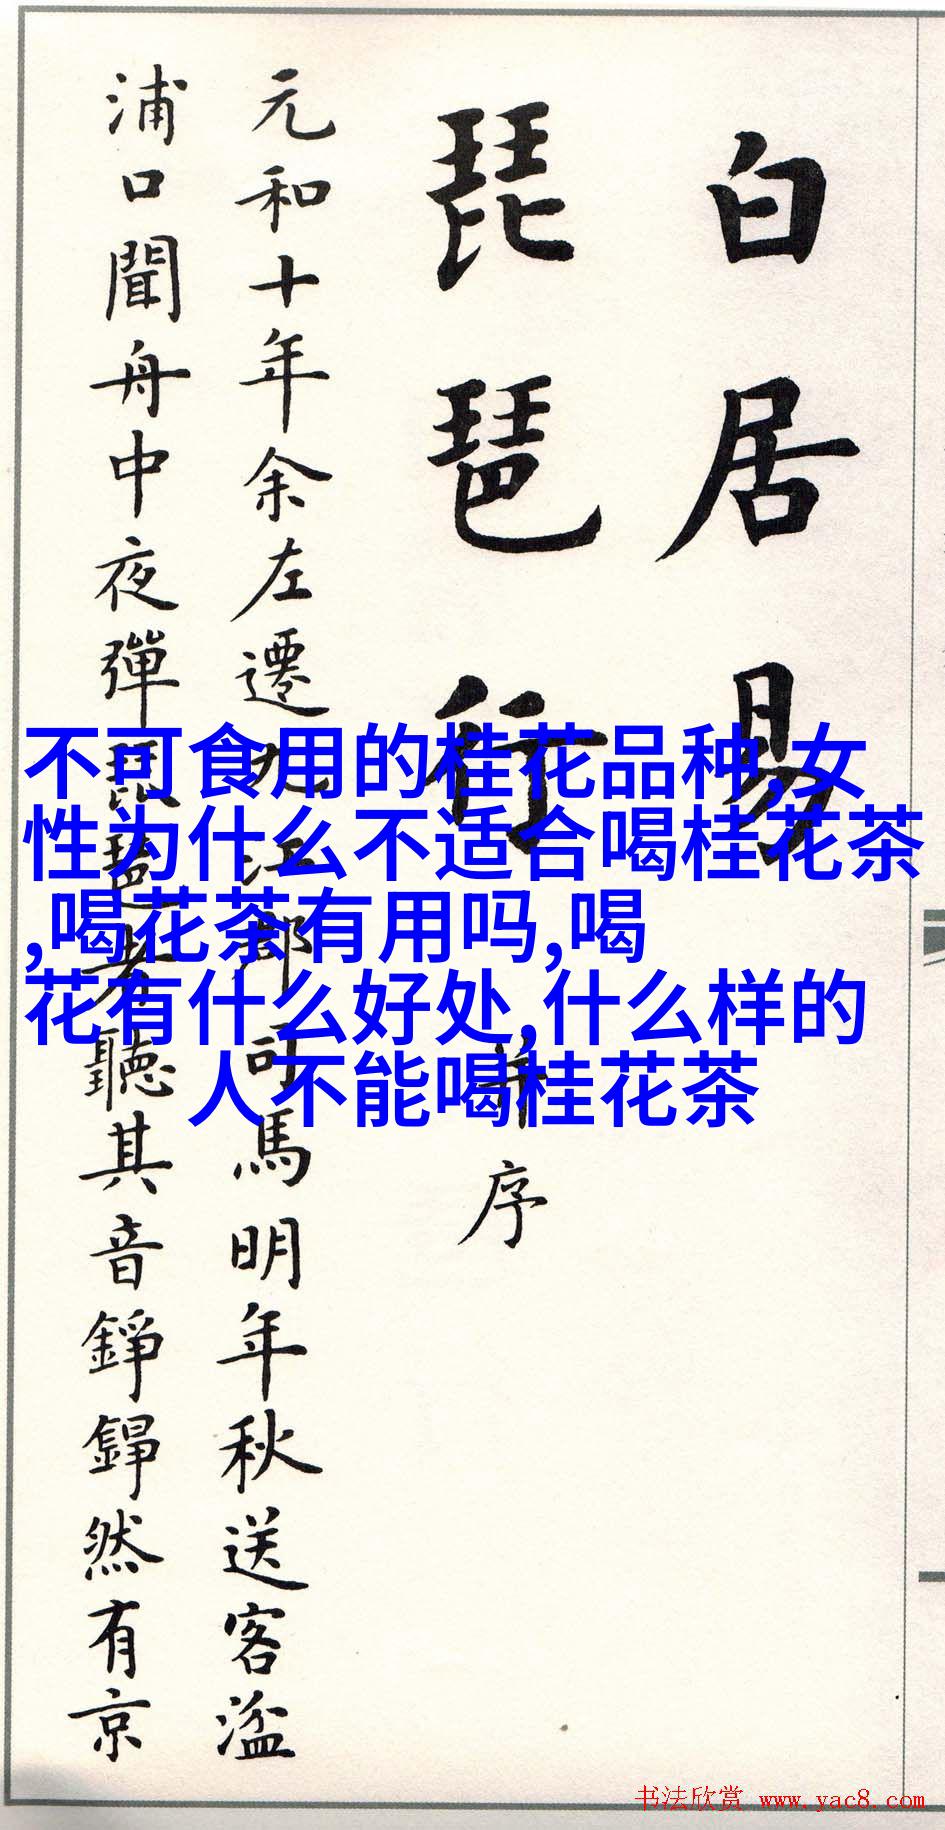 白居易
琵琶行
并序
元和十年余左遷九江郡司馬明年秋送客湓
浦口聞舟中夜彈琵琶者聽其音錚錚然有京
不可食用的桂花品种,女
性为什么不适合喝桂花茶
,喝花茶有用吗,喝
花有什么好处,什么样的
人不能喝桂花茶
书法欣赏 www.yac8.com